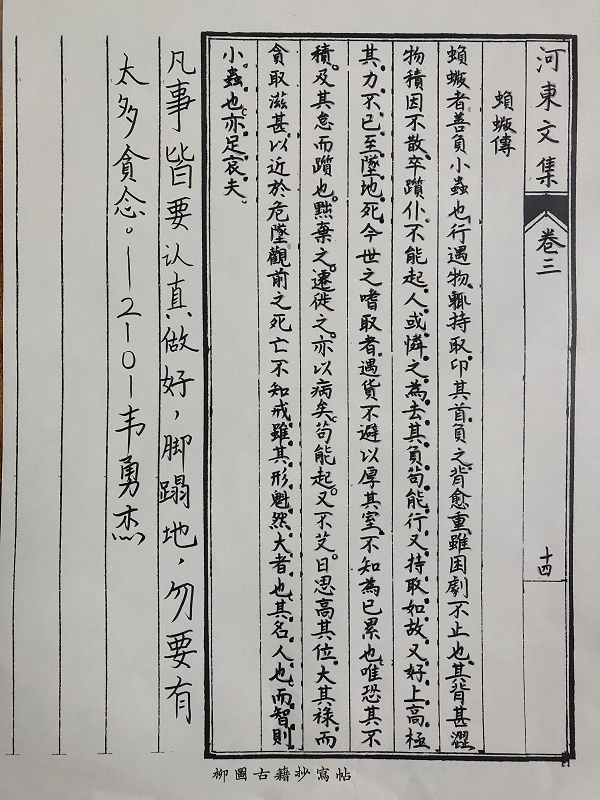 河東文集 卷三 十四
蝜蝂傳
蝜蝂者善負小蟲也行遇物輒持取印其首負之背愈重雖困劇不止也其背甚澀
物積因不散卒躓仆不能起人或憐之為去其負苟能行又持取如故又好上高極
其力不已至墜地死今世之嗜取者遇貨不避以厚其室不知為已累也唯恐其不
積及其怠而躓也黜棄之遷徙之亦以病矣苟能起又不艾日思高其位大其祿而
貪取滋甚以近於危墜觀前之死亡不知戒雖其形魁然大者也其名人也而智則
小蟲也亦足哀夫
凡事皆要认真做好，脚蹋地，勿要有
太多貪念。—2101韦勇杰
柳圖古籍抄寫帖